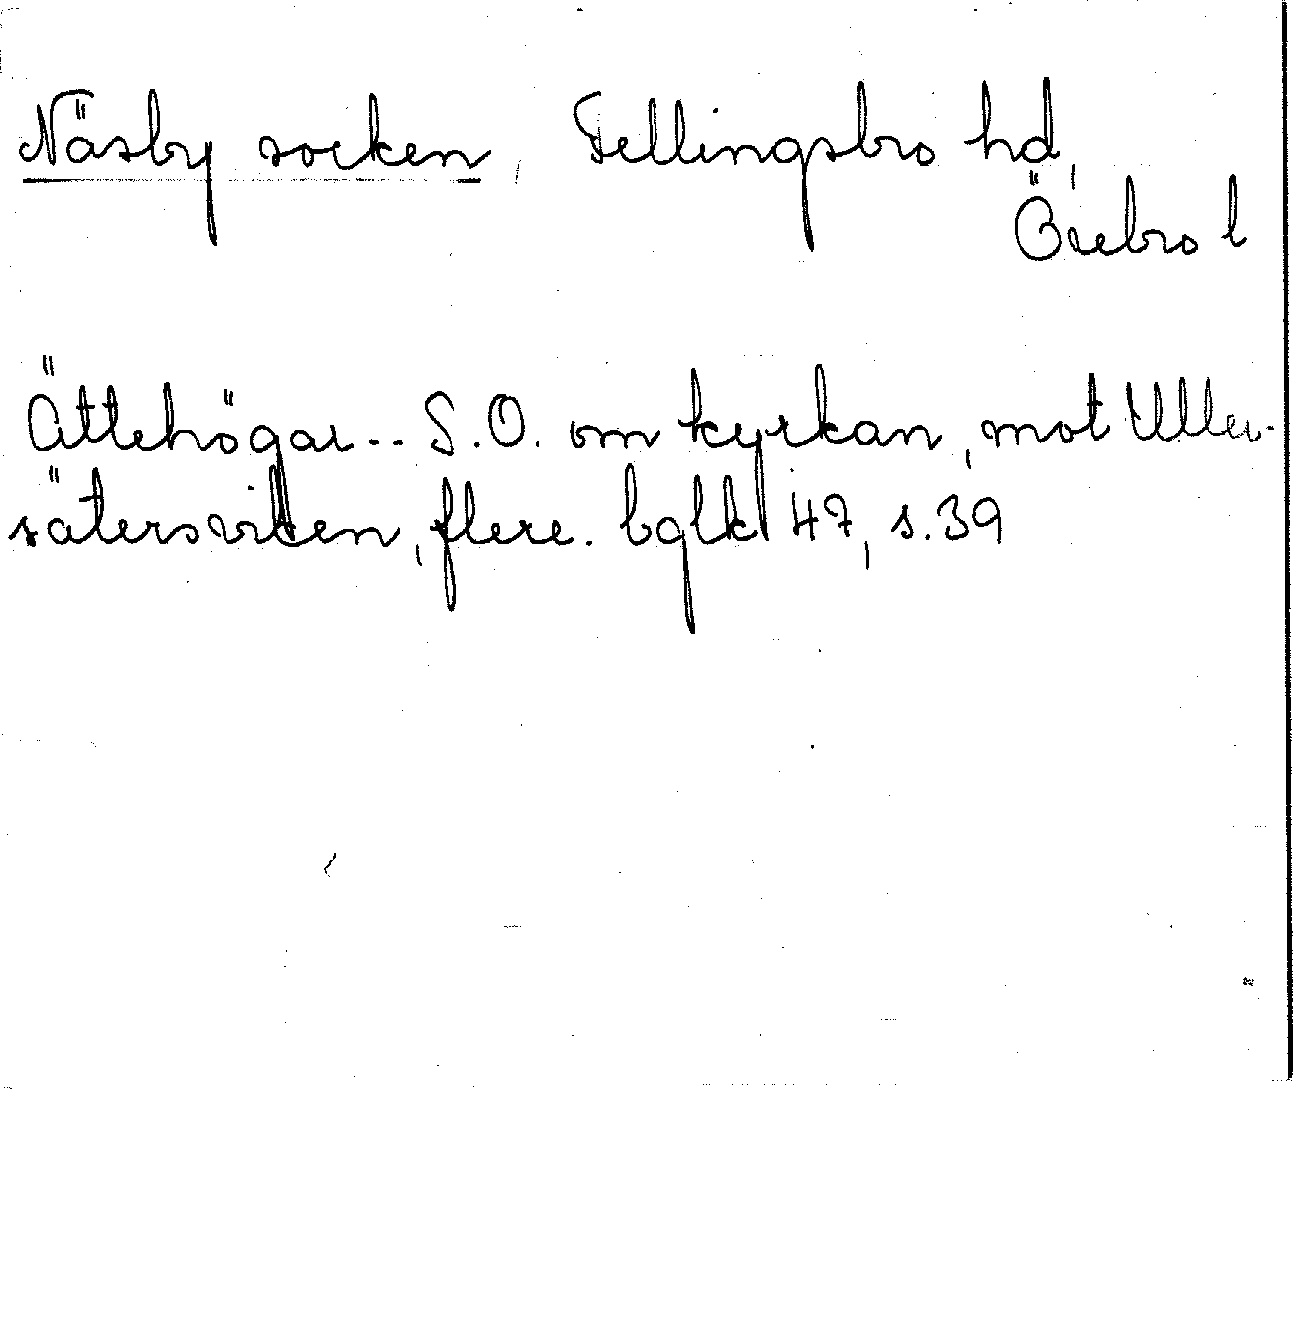 Näsby socken, Fellingsbro hd,
Örebro l
Ättehögar -- S.O. om kyrkan, mot Uller-
sätersviken, flere. bglk 47, s. 39